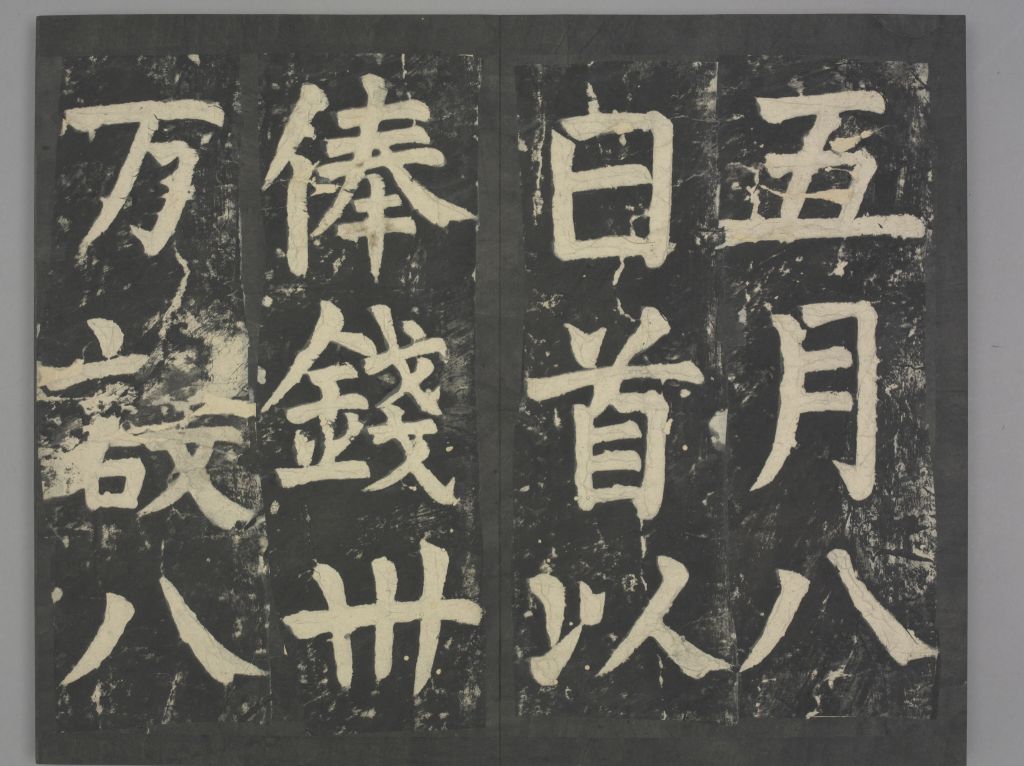 五月八
日首以
俸錢卅
万設八